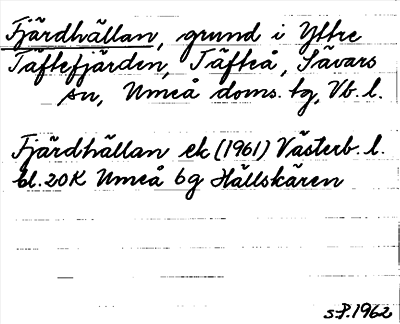 Fjärdhällan, grund i Yttre
Täftefjärden, Täfteå, Sävars
sn, Umeå doms. tg, Vb. l.
Fjärdhällan ek (1961) Västerb. l.
bl. 20K Umeå 6g Hällskären
s.P. 1962